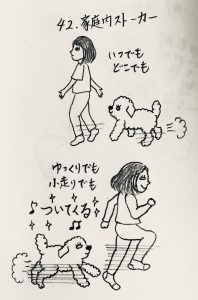 42.家庭内ストーカー
いつでも
どこでも
ゆっくりでも
小走りでも
ついてくる